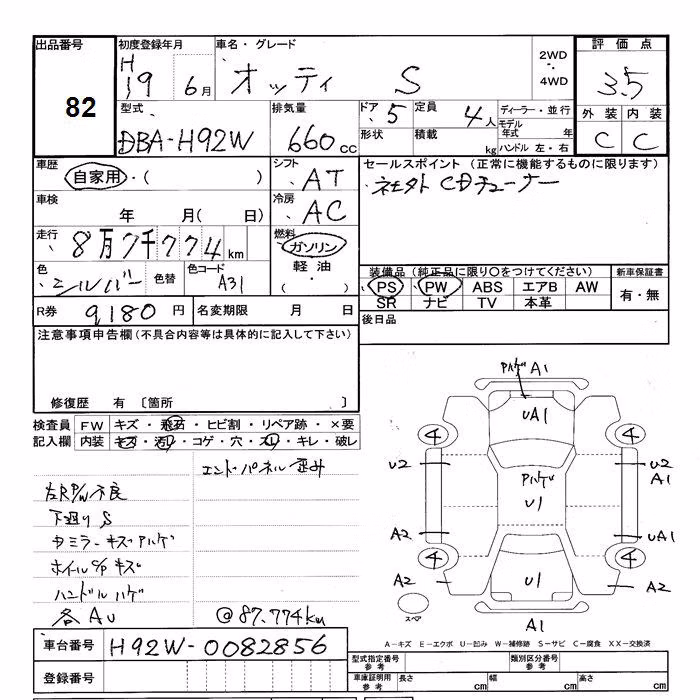 出品番号
82
初度登録年月
H19 6月
車名・グレード
オッティ S
2WD
・
4WD
評価点
3.5
外装 内装
C C
型式
DBA-H92W
排気量
660cc
ドア 5
定員 4人
形状
積載 kg
ディーラー・並行
モデル年式 年
ハンドル 左・右
車歴
自家用・( )
車検
年 月( 日)
走行
8万7千774km
色
シルバー
色替
色コード
A31
シフト
AT
冷房
AC
燃料
ガソリン
軽油
・( )
セールスポイント (正常に機能するものに限ります)
社外CDチューナー
装備品(純正品に限り○をつけてください)
PS PW ABS エアB AW
SR ナビ TV 本革
新車保証書
有・無
R券 9,180円
名変期限 月 日
後日品
注意事項申告欄(不具合内容等は具体的に記入して下さい)
修復歴 有 〔箇所 〕
検査員記入欄
FW キズ・飛石・ヒビ割・リペア跡・×要
内装 キズ・汚レ・コゲ・穴・スレ・キレ・破レ
エンドパネル歪み
左RP/W不良
下廻りS
ホイールC/Pキズ
ハンドルハゲ
各AU
@87.774km
A1
UA1
4 4
U2 U2
A1
U1
A2 UA1
4 4
A2 A2
U1
スペア
A1
A-キズ E-エクボ U-凹み W-補修跡 S-サビ C-腐食 XX-交換済
車台番号
H92W-0082856
登録番号
型式指定番号 参考
類別区分番号 参考
車庫証明用 参考
長さ cm 幅 cm 高さ cm